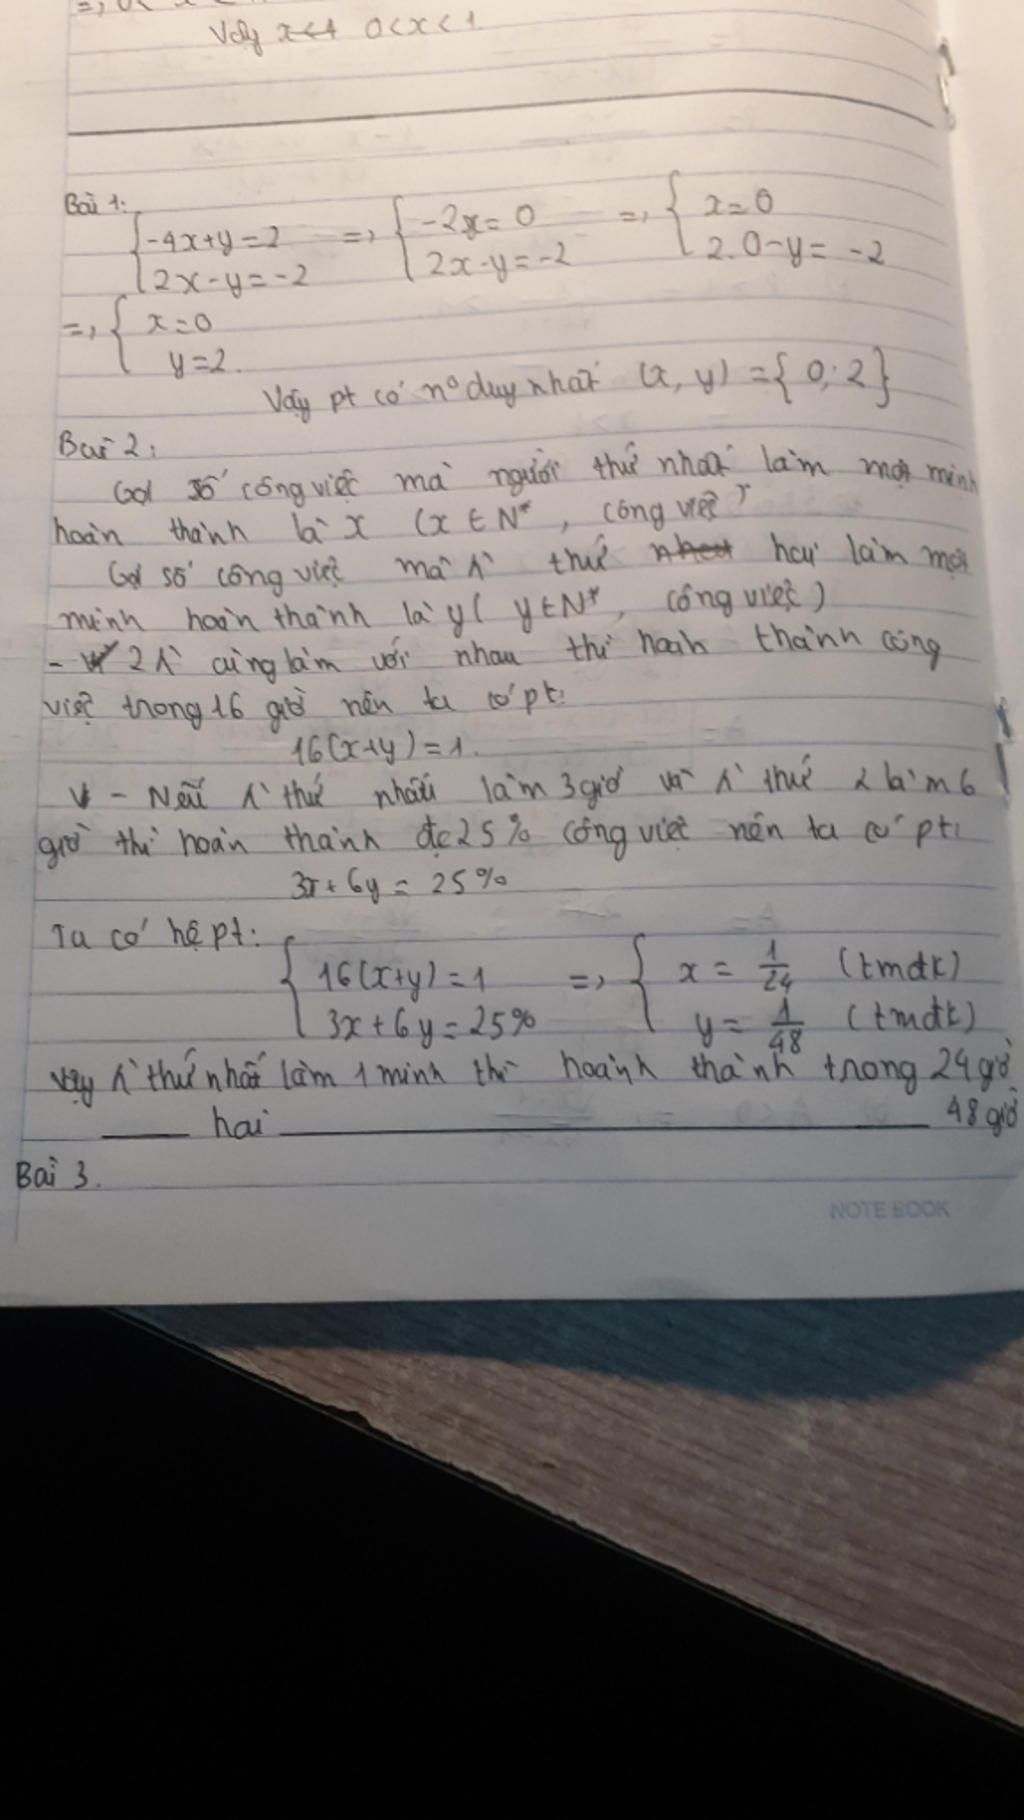 Vậy x<1 0<x<1.
Bài 1:
{ -4x+y=2 => { -2x=0 => { x=0
2x-y=-2 2x-y=-2 2.0-y=-2
=> { x=0
y=2.
Vậy pt có nº duy nhất (x,y)={0;2}
Bài 2:
Gọi số công việc mà người thứ nhất làm một mình
hoàn thành là x (x∈N*, công việc)
Gọi số công việc mà λ` thứ hai làm một
mình hoàn thành là y( y∈N*, công việc)
- 2λ` cùng làm với nhau thì hoành thành công
việc trong 16 giờ nên ta có pt:
16(x+y)=1.
- Nếu λ` thứ nhất làm 3 giờ và λ` thứ 2 làm 6
giờ thì hoàn thành đc 25% công việc nên ta có pt:
3x+6y=25%
Ta có hệ pt:
{ 16(x+y)=1 => { x=1/24 (tmđk)
3x+6y=25% y=1/48 (tmđk)
Vậy λ` thứ nhất làm 1 mình thì hoành thành trong 24 giờ
hai 48 giờ
Bài 3.
NOTE BOOK